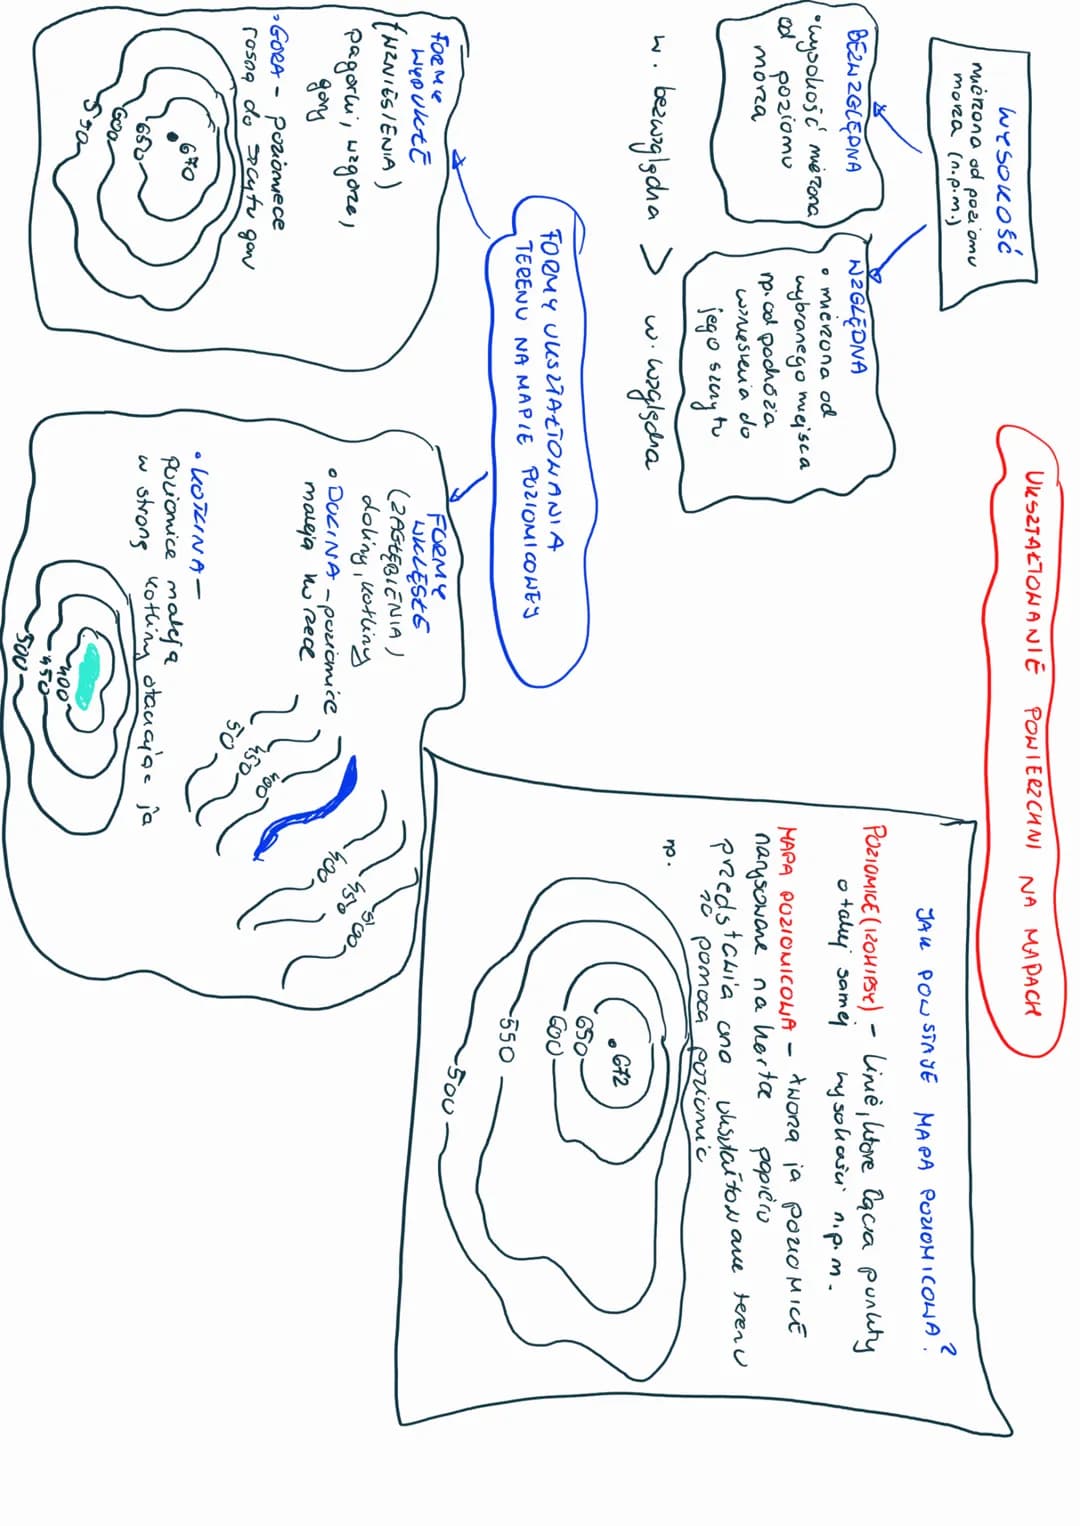 UKSZTAŁTOWANIE POWIERZCHNI NA MAPACH
WYSOKOŚĆ
mierzona od poziomu
morza (n.p.m.)
BEZWZGLĘDNA
• wysokość mierzona
od poziomu
morza
WZGLĘDNA
• mierzona od
wybranego miejsca
np. od podnóża
wzniesienia do
jego szczytu
w. bezwzględna > w. względna
JAK POWSTAJE MAPA POZIOMICOWA?
POZIOMICE (IZOHIPSY) - linie, które łączą punkty
o takiej samej wysokości n.p.m.
MAPA POZIOMICOWA - tworzą ją POZIOMICE
narysowane na kartce papieru
przedstawia ona ukształtowanie terenu
za pomocą poziomic
np.
.672
650
600
550
500
FORMY UKSZTAŁTOWANIA
TERENU NA MAPIE POZIOMICOWEJ
FORMY
WYPUKŁE
(WZNIESIENIA)
pagórki, wzgórza,
góry
• GÓRA - poziomice
rosną do szczytu góry
.670
650
600
550
FORMY
WKLĘSŁE
(ZAGŁĘBIENIA)
doliny, kotliny
• DOLINA - poziomice
maleją ku rzece
400
450
50
400
450
500
• KOTLINA -
poziomice maleją
w stronę kotliny otaczając ją
400
450
500